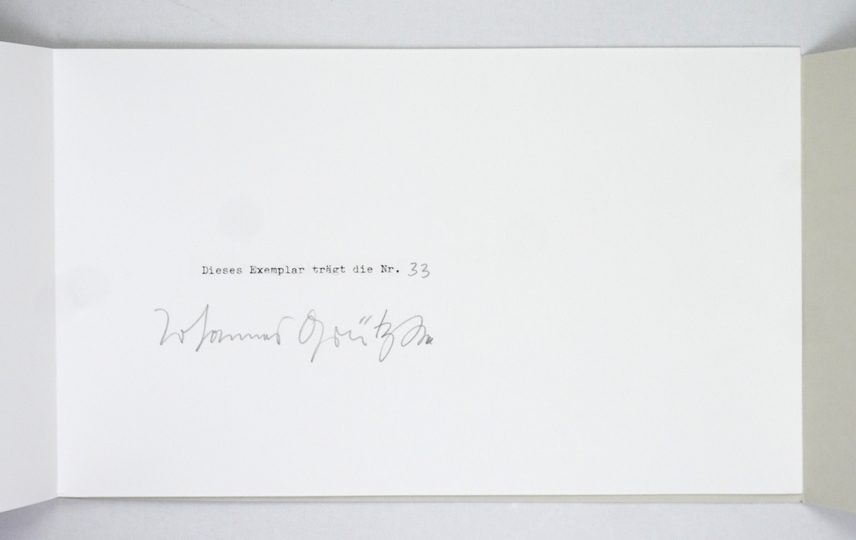 Dieses Exemplar trägt die Nr. 33
Johannes Grützke